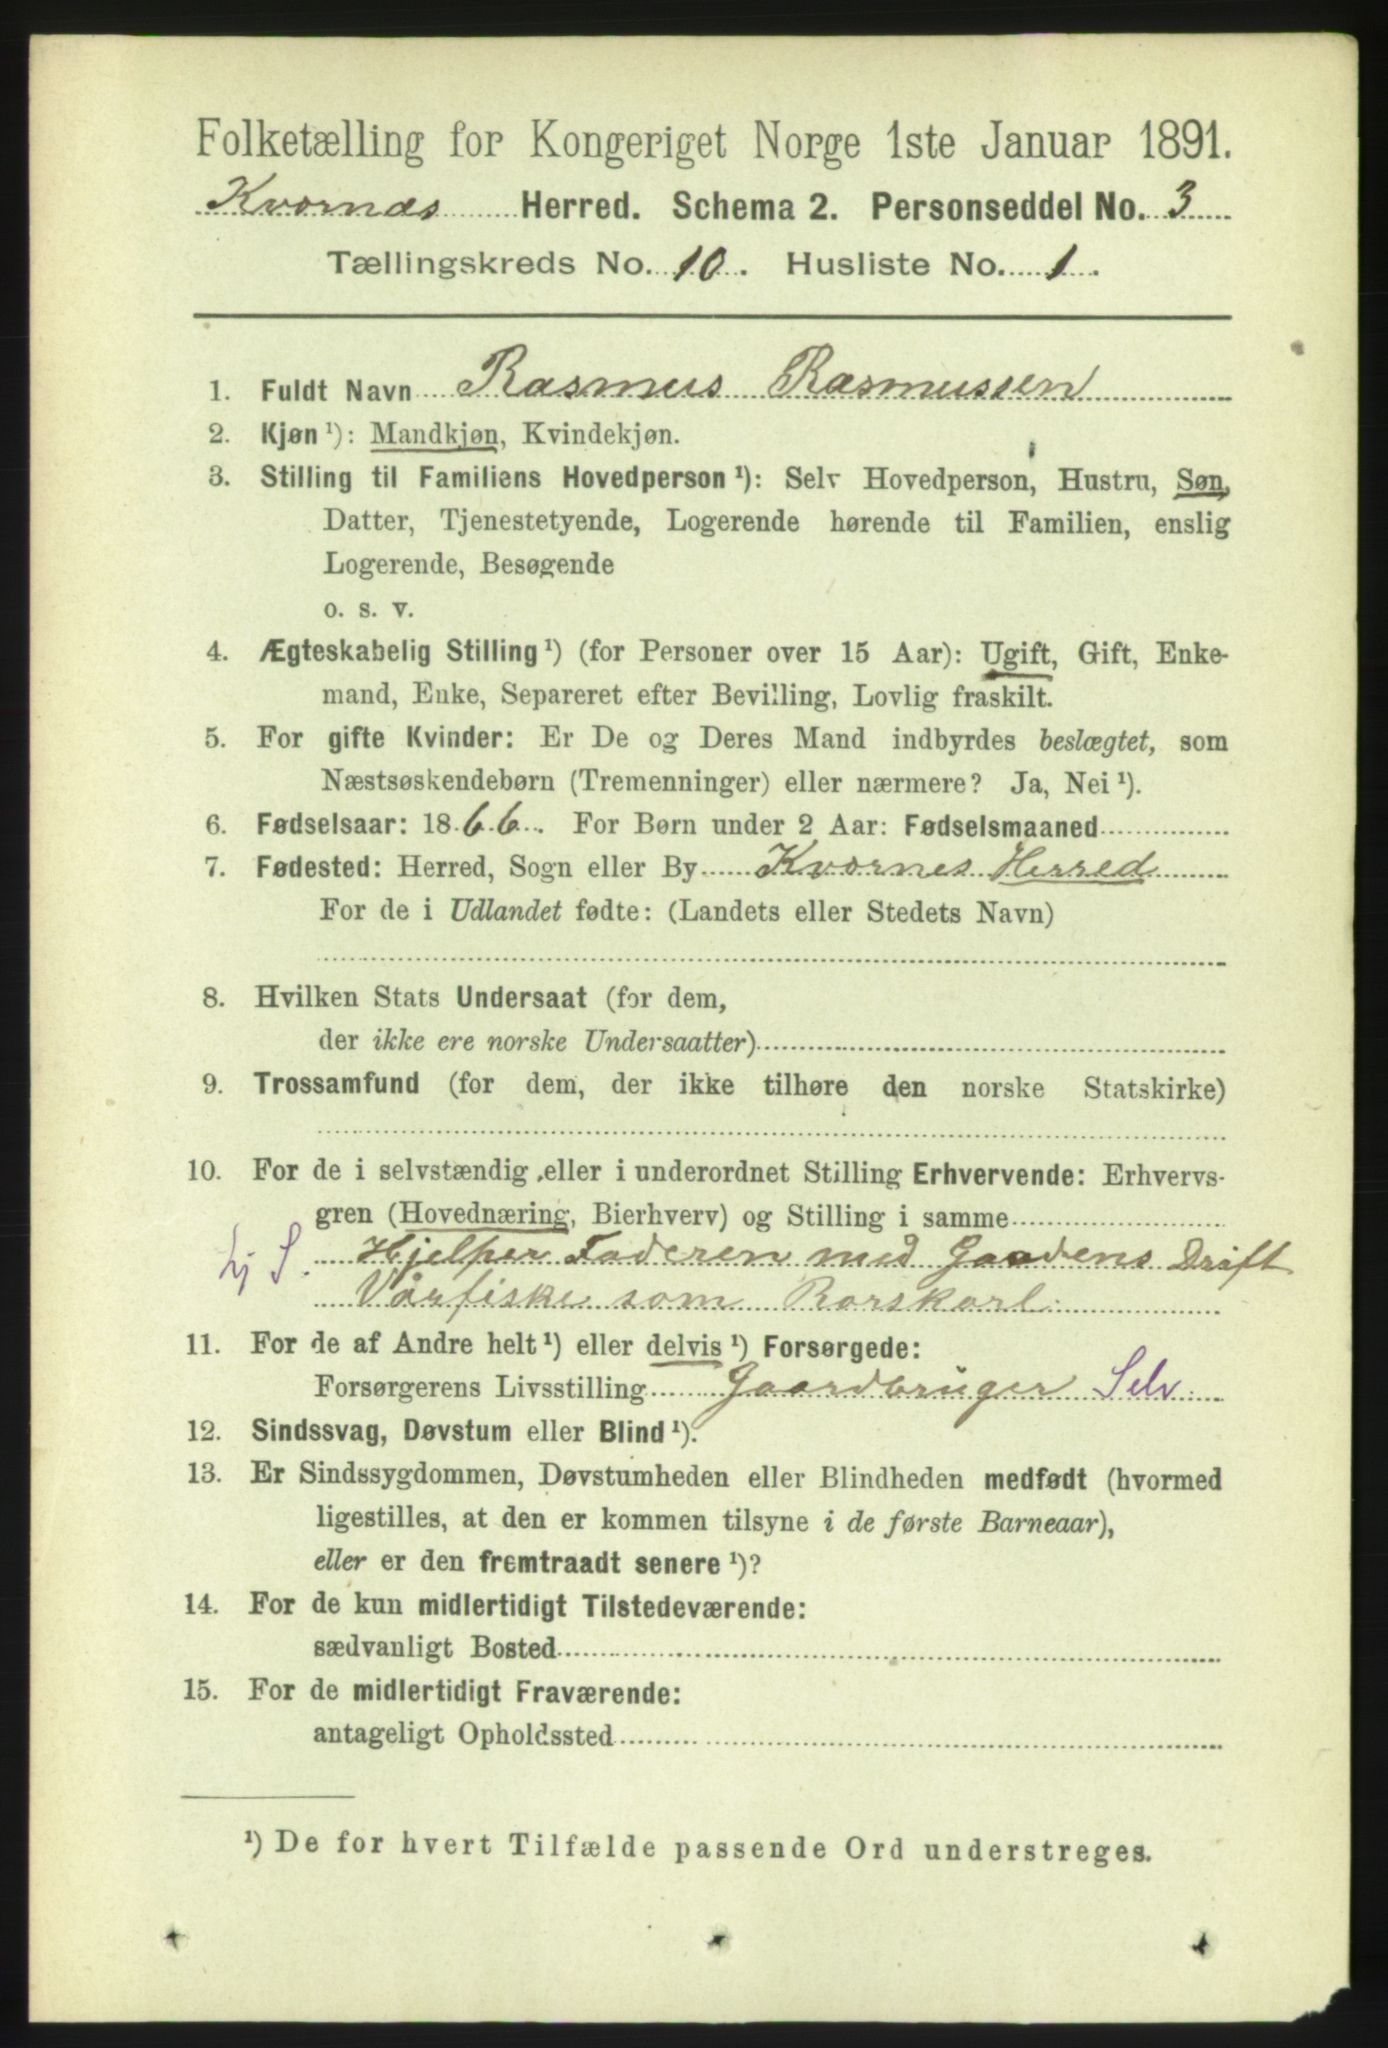 Folketælling for Kongeriget Norge 1ste Januar 1891.
Kvornæs Herred. Schema 2. Personseddel No. 3
Tællingskreds No. 10. Husliste No. 1.
1. Fuldt Navn Rasmus Rasmussen
2. Kjøn ¹): Mandkjøn, Kvindekjøn.
3. Stilling til Familiens Hovedperson ¹): Selv Hovedperson, Hustru, Søn,
Datter, Tjenestetyende, Logerende hørende til Familien, enslig
Logerende, Besøgende
o. s. v.
4. Ægteskabelig Stilling ¹) (for Personer over 15 Aar): Ugift, Gift, Enke-
mand, Enke, Separeret efter Bevilling, Lovlig fraskilt.
5. For gifte Kvinder: Er De og Deres Mand indbyrdes beslægtet, som
Næstsøskendebørn (Tremenninger) eller nærmere? Ja, Nei ¹).
6. Fødselsaar: 1866. For Børn under 2 Aar: Fødselsmaaned
7. Fødested: Herred, Sogn eller By Kvornes Herred
For de i Udlandet fødte: (Landets eller Stedets Navn)
8. Hvilken Stats Undersaat (for dem,
der ikke ere norske Undersaatter)
9. Trossamfund (for dem, der ikke tilhøre den norske Statskirke)
10. For de i selvstændig eller i underordnet Stilling Erhvervende: Erhvervs-
gren (Hovednæring, Bierhverv) og Stilling i samme
Lj S. Hjelper Faderen med Gaardens Drift
Vårfiske som Rorskarl.
11. For de af Andre helt ¹) eller delvis ¹) Forsørgede:
Forsørgerens Livsstilling Gaardbruger Selv.
12. Sindssvag, Døvstum eller Blind ¹).
13. Er Sindssygdommen, Døvstumheden eller Blindheden medfødt (hvormed
ligestilles, at den er kommen tilsyne i de første Barneaar),
eller er den fremtraadt senere ¹)?
14. For de kun midlertidigt Tilstedeværende:
sædvanligt Bosted
15. For de midlertidigt Fraværende:
antageligt Opholdssted
¹) De for hvert Tilfælde passende Ord understreges.